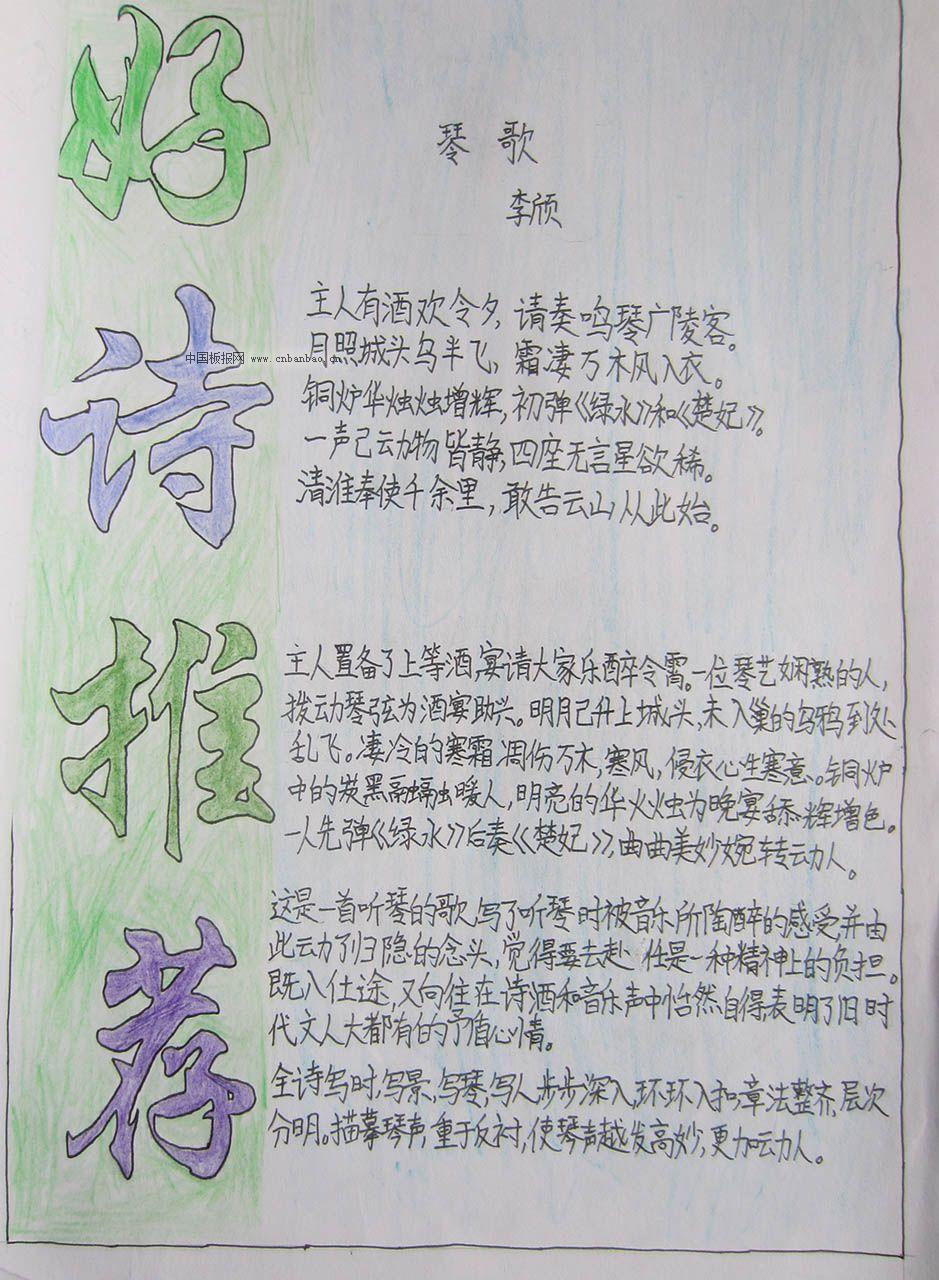 好诗推荐
琴歌
李颀
主人有酒欢令夕,请奏鸣琴广陵客。
月照城头乌半飞,霜凄万木风入衣。
铜炉华烛烛增辉,初弹《绿水》和《楚妃》。
一声己云动物皆静,四座无言星欲稀。
清淮奉使千余里,敢告云山从此始。
中国板报网 www.cnbanbao.cn
主人置备了上等酒,宴请大家乐醉令霄。一位琴艺娴熟的人,
拨动琴弦为酒宴助兴。明月己升上城头,未入巢的乌鸦到处
乱飞。凄冷的寒霜凋伤万木,寒风,侵衣心生寒意。铜炉
中的炭黑暖人,明亮的华火烛为晚宴舔辉增色。
一人先弹《绿水》后奏《楚妃》,曲曲美妙婉转动人。
这是一首听琴的歌,写了听琴时被音乐所陶醉的感受,并由
此动了归隐的念头,觉得要去赴任是一种精神上的负担。
既入仕途,又向往在诗酒和音乐声中怡然自得表明了旧时
代文人大都有的矛盾心情。
全诗写时,写景,写琴,写人步步深入,环环入扣,章法整齐,层次
分明。描摹琴声,重于反衬,使琴声越发高妙,更加动人。